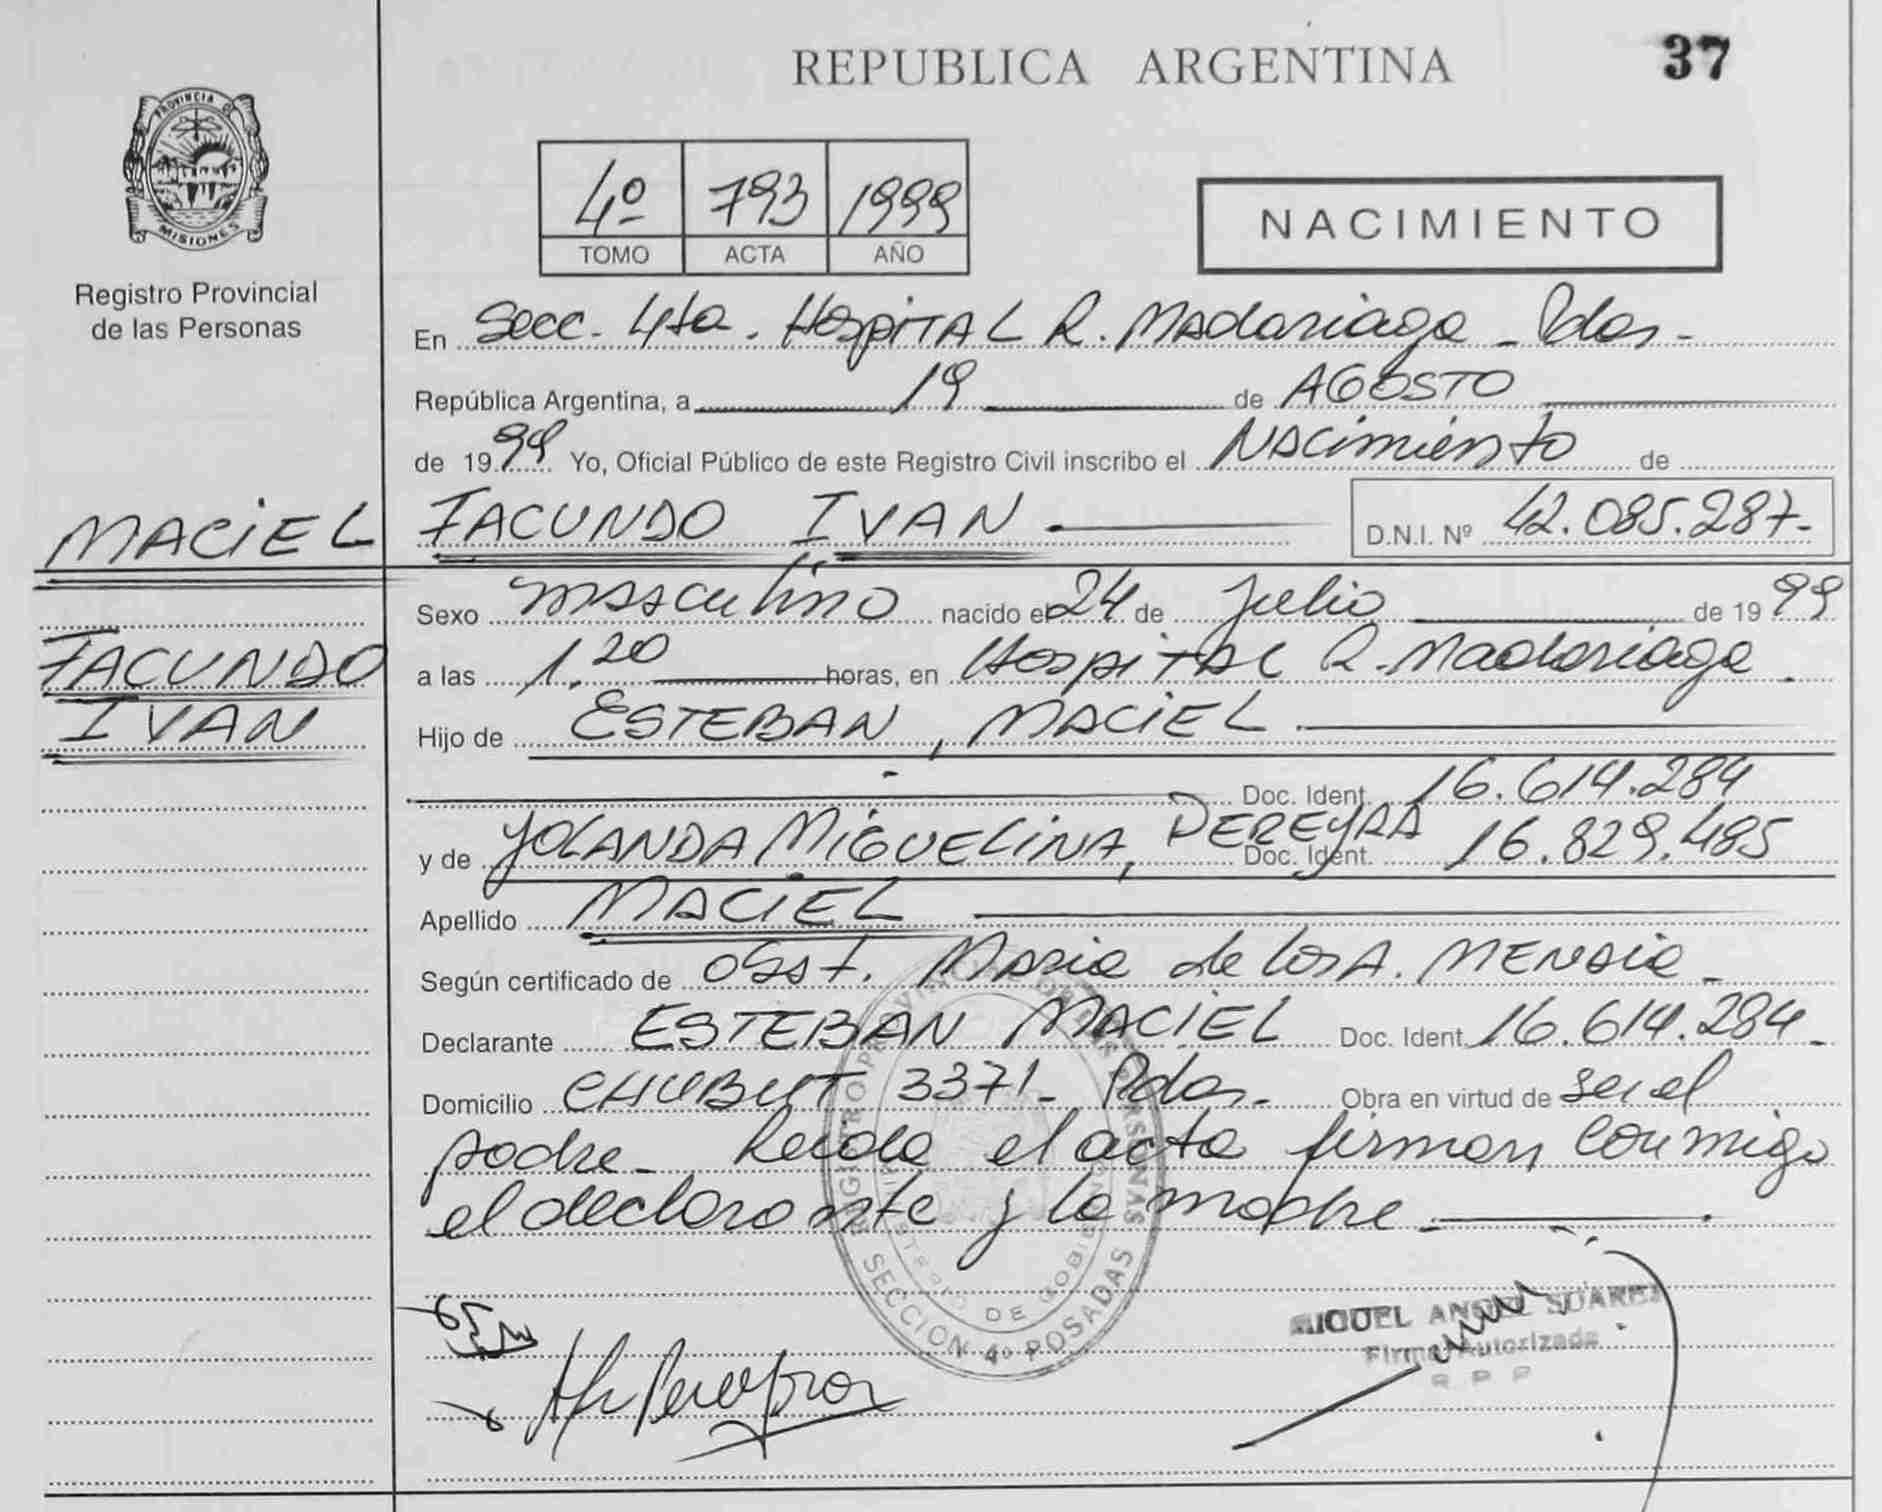 REPUBLICA ARGENTINA
37
PROVINCIA DE
MISIONES
Registro Provincial
de las Personas
4º 793 1999
TOMO ACTA AÑO
NACIMIENTO
En Secc. 4ta. Hospital R. Madariaga - Pdas -
República Argentina, a 19 de AGOSTO
de 1999 Yo, Oficial Público de este Registro Civil inscribo el Nacimiento de
MACIEL FACUNDO IVAN D.N.I. Nº 42.085.287.-
Sexo masculino nacido el 24 de Julio de 1999
FACUNDO
a las 1.20 horas, en Hospital R. Madariaga.
IVAN
Hijo de ESTEBAN, MACIEL
Doc. Ident. 16.614.284
y de YOLANDA MIGUELINA, PEREYRA Doc. Ident. 16.829.485
Apellido MACIEL
Según certificado de Obst. Maria de los A. MENDIE -
Declarante ESTEBAN MACIEL Doc. Ident. 16.614.284.-
Domicilio CHUBUT 3371 - Pdas. - Obra en virtud de ser el
padre - Leida el acta firman conmigo
el declarante y la madre -
REGISTRO PROVINCIAL DE LAS PERSONAS
MINISTERIO DE GOBIERNO
SECCION 4º POSADAS
MIGUEL ANGEL SUAREZ
Firma Autorizada
R P P